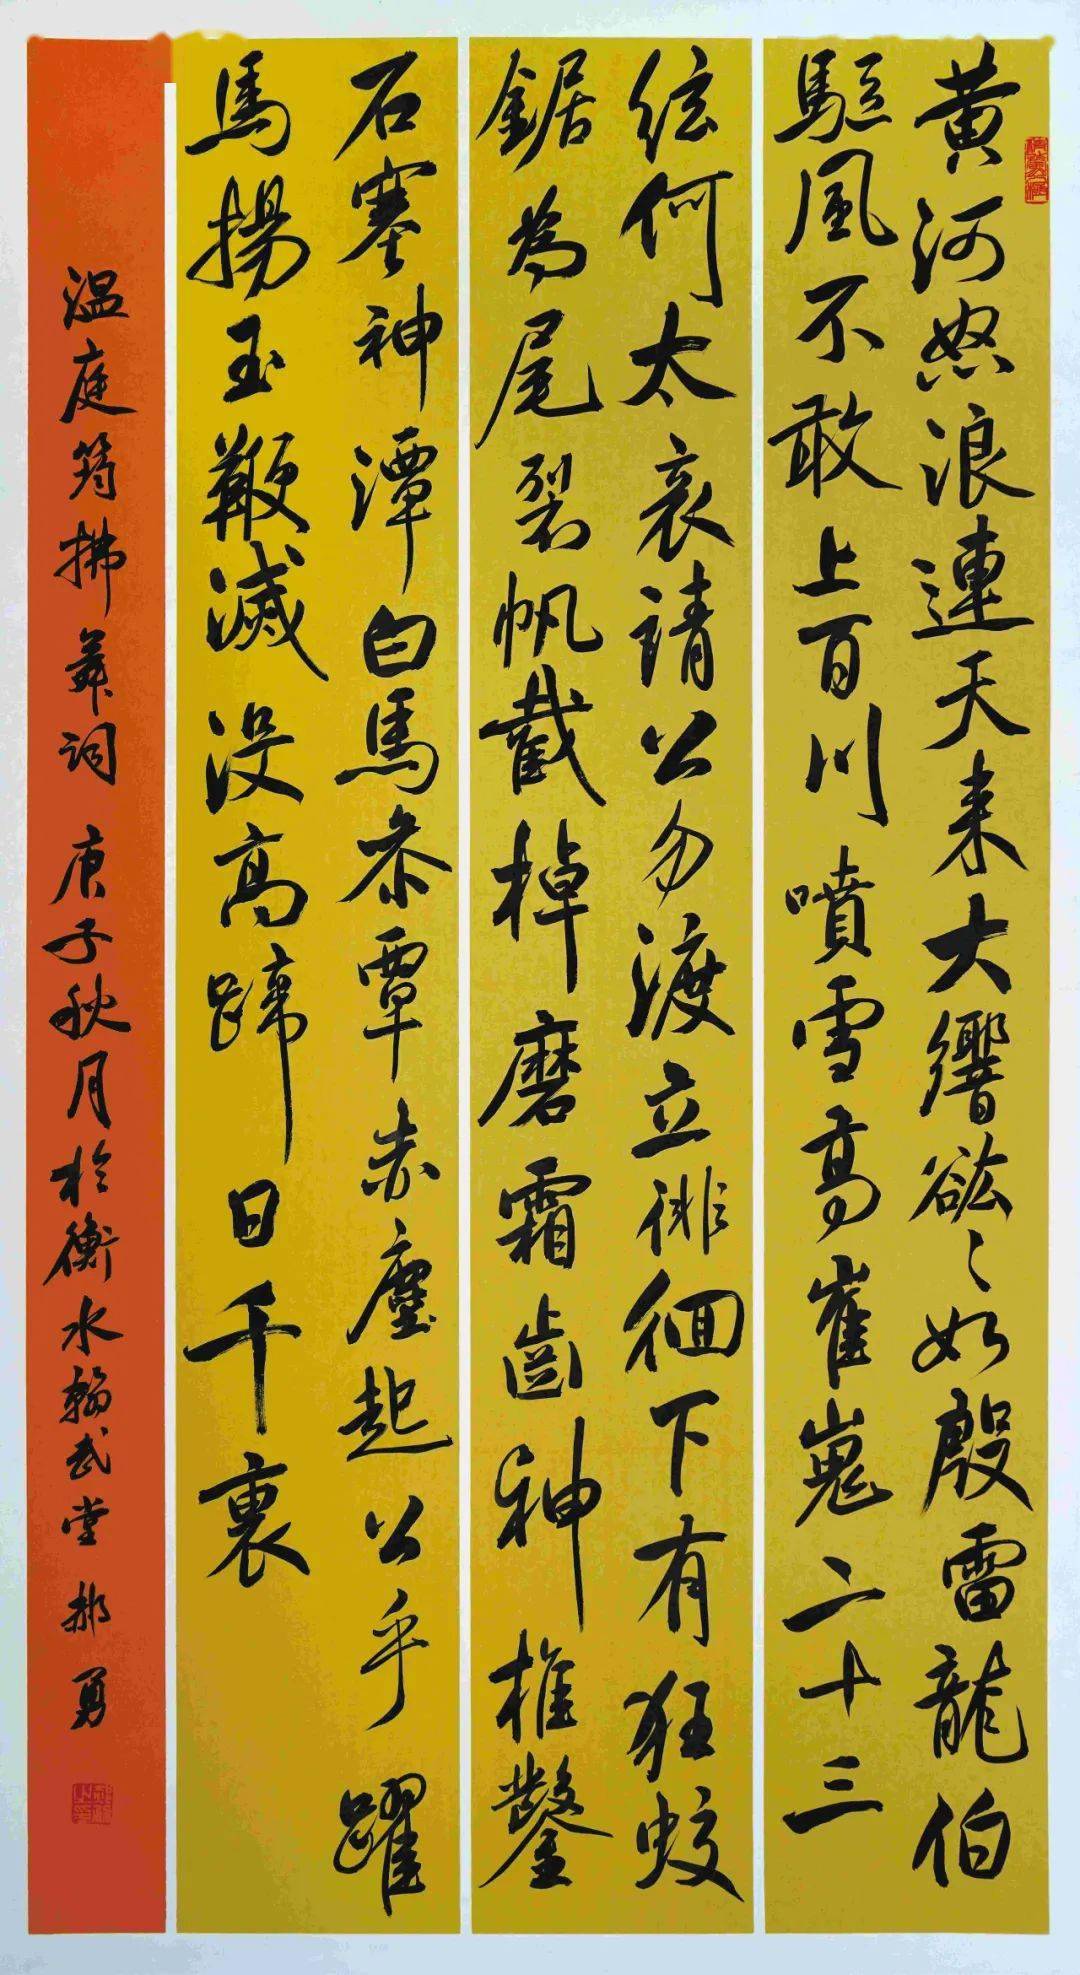 黄河怒浪連天来大響谹〻如殷雷龍伯
驅風不敢上百川噴雪高崔嵬二十三
絃何太哀請公勿渡立徘徊下有狂蛟
鋸為尾裂帆截棹磨霜齒神椎鑿
石塞神潭白馬参覃赤塵起公乎躍
馬揚玉鞭滅没高蹄日千裏
温庭筠拂舞詞 庚子秋月於衡水翰武堂 郝勇